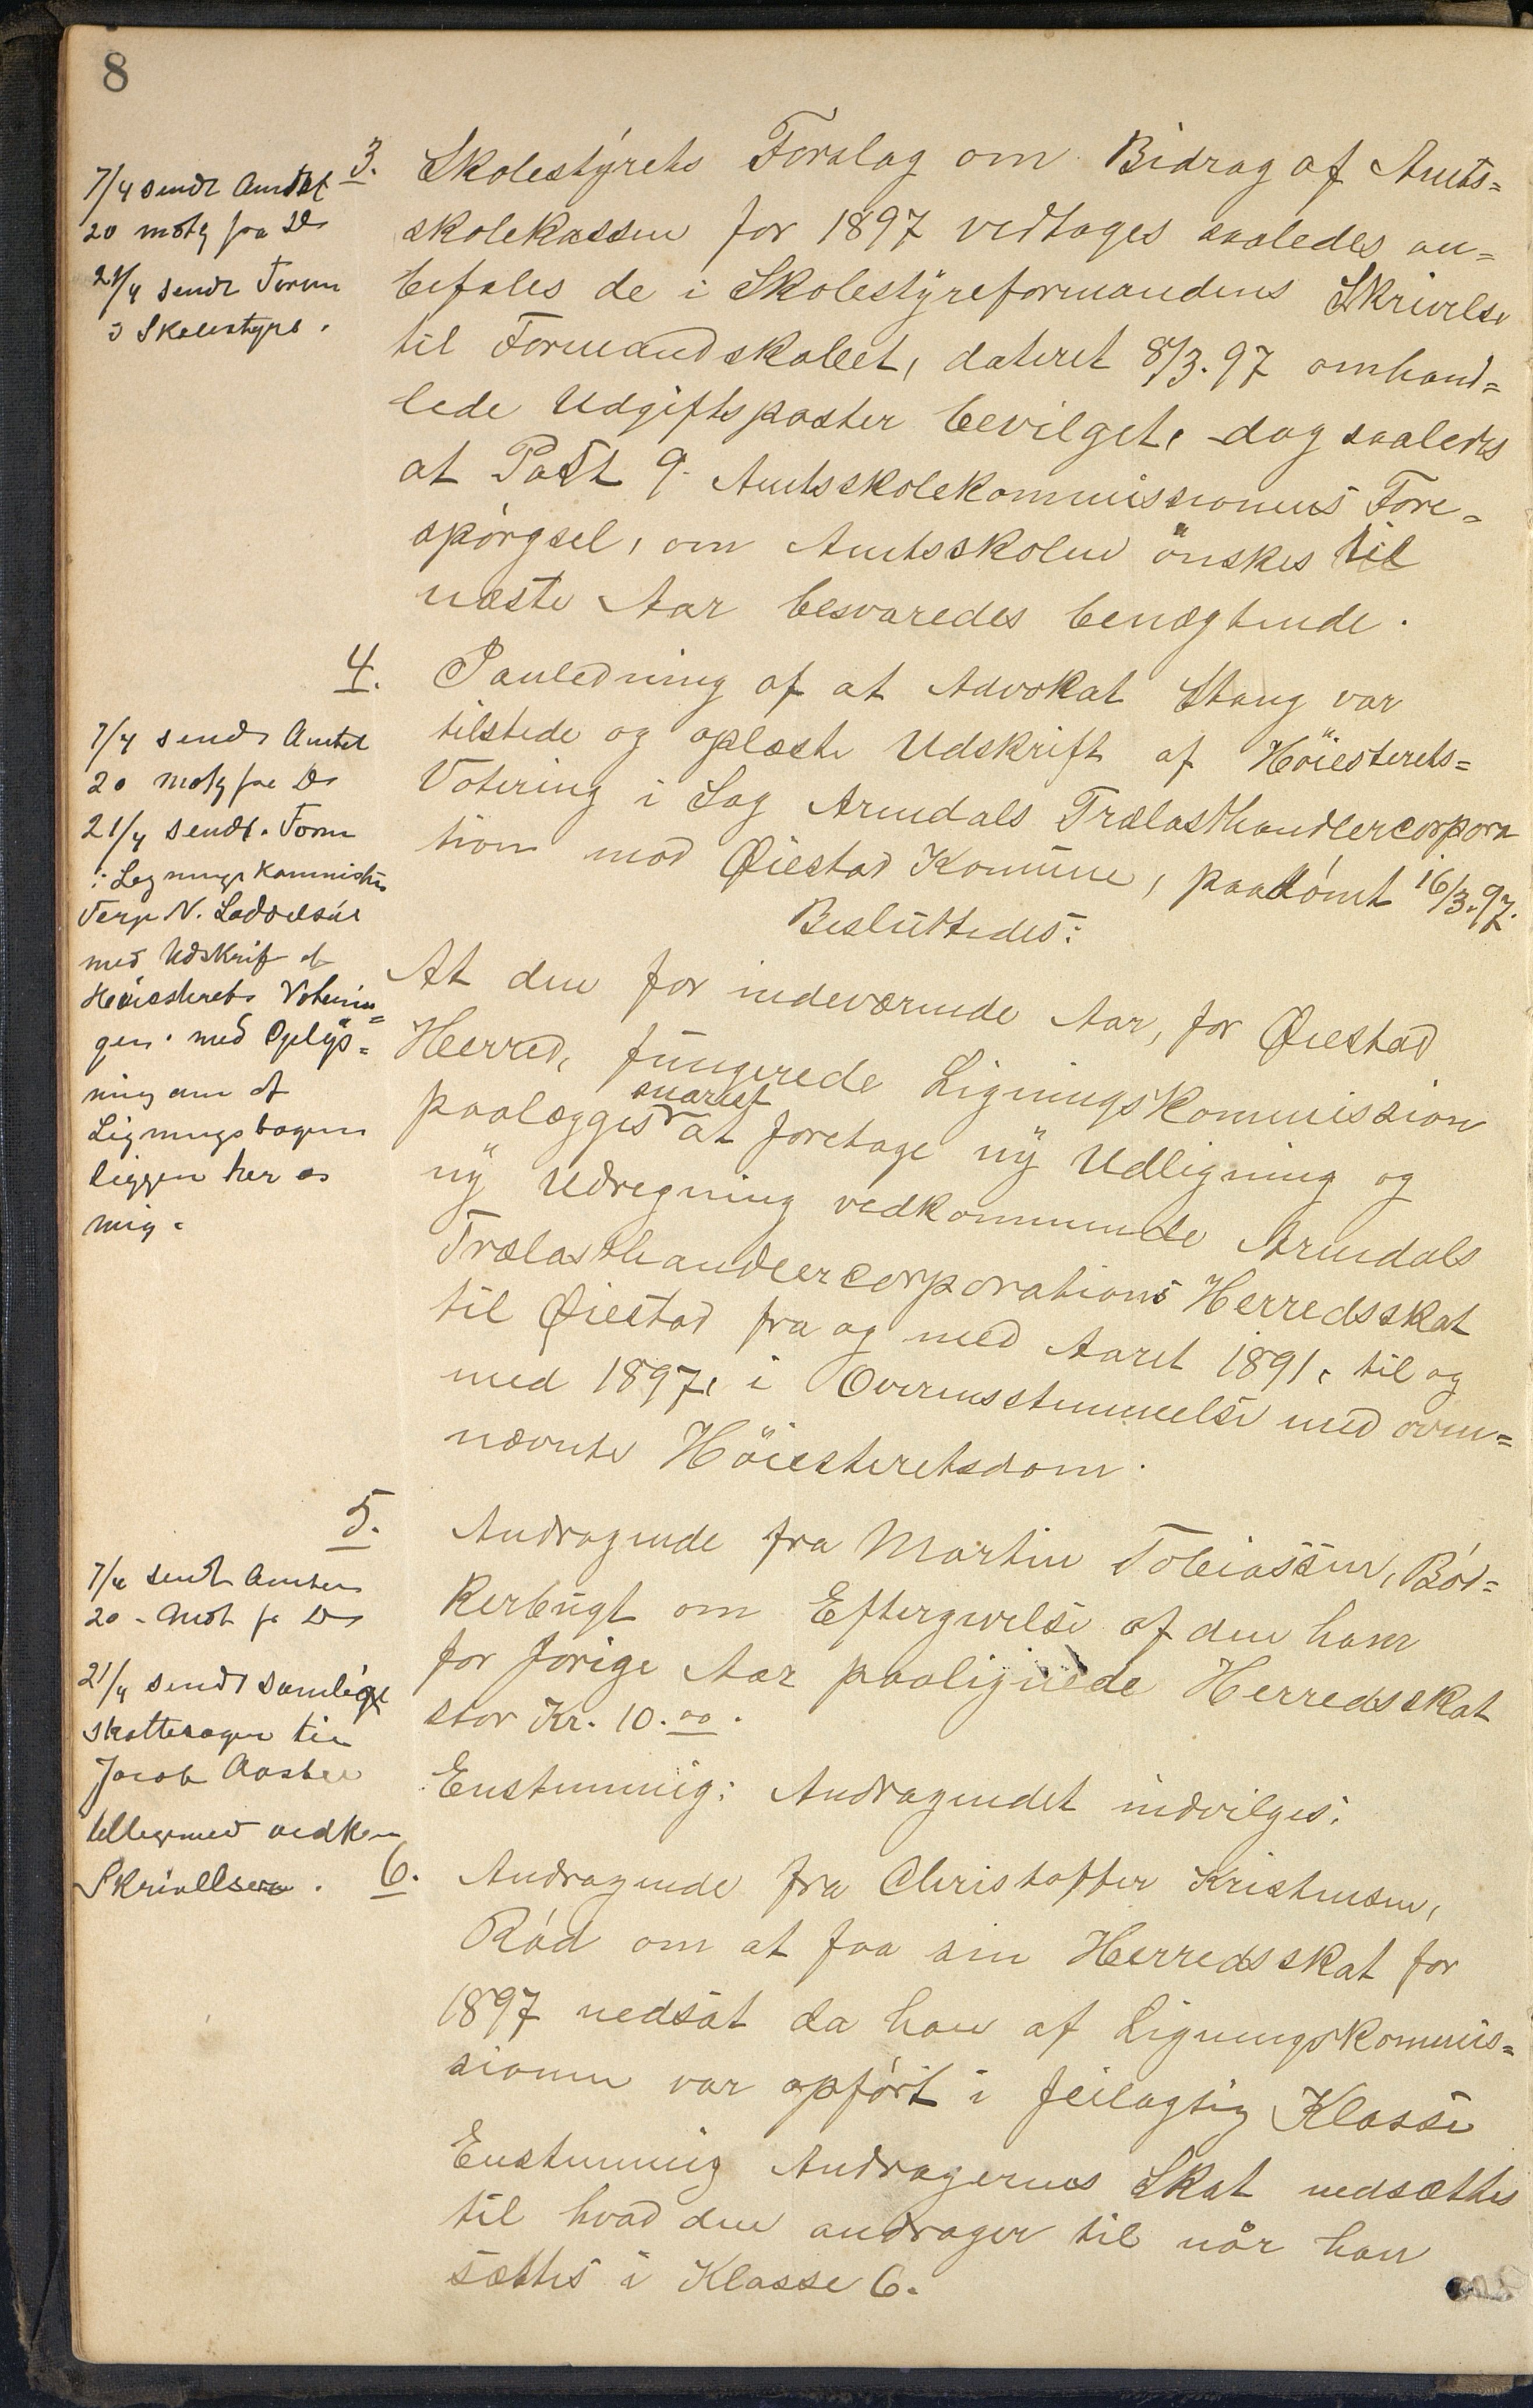 8
3. Skolestyrets Forslag om Bidrag af Amts=
skolekassen for 1897 vedtages saaledes an=
befales de i Skolestyreformandens Skrivelse
til Formandskabet, dateret 8/3.97 omhand=
lede Udgiftsposter bevilget, dog saaledes
at Post 9. Amtsskolekommissionens Fore=
spørgsel, om Amtsskolen önskes til
næste Aar besvaredes benægtende.
7/4 sendt Amtet
20 motg fra Do
21/4 sendt Form
i Skolestyre.
4. I anledning af at Advokat Stang var
tilstede og oplæste Udskrift af Höiesterets=
Votering i Sag Arendals Trælasthandlercorpora
tion mod Øiestad Komune, paadömt 16/3.97.
Besluttedes:
At den for indeværende Aar, for Øiestad
Herred, fungerede Ligningskommission
paalægges snarest at foretage ny Udligning og
ny Udregning vedkommende Arendals
Trælasthandlercorporations Herredsskat
til Øiestad fra og med Aaret 1891, til og
med 1897, i Overensstemmelse med oven=
nævnte Höiesteretsdom.
7/4 sendt Amtet
20 motg fra Do
21/4 sendt. Form
i Legnings Kommission
Terje N.
med Udskrift af
Höiesterets Voterin=
gen. med Oplys=
ning om at
Ligningsbogen
ligger her os
mig.
5. Andragende fra Martin Tobiassen, Böd=
kerbugt om Eftergivelse af den ham
for forige Aar paalignede Herredsskat
stor Kr. 10.00.
Enstemmig: Andragendet indvilges.
7/4 sendt Amtet
20 - Mot fr Do
21/4 sendt samlige
skattesager til
Jacob
tilligemed vedkom
Skrivelsen.
6. Andragende fra Christoffer Kristensen,
Röd om at faa sin Herredsskat for
1897 nedsat da han af Ligningskommis=
sionen var opfört i feilagtig Klasse
Enstemmig Andragernes Skat nedsættes
til hvad den andrager til når han
sættes i Klasse 6.